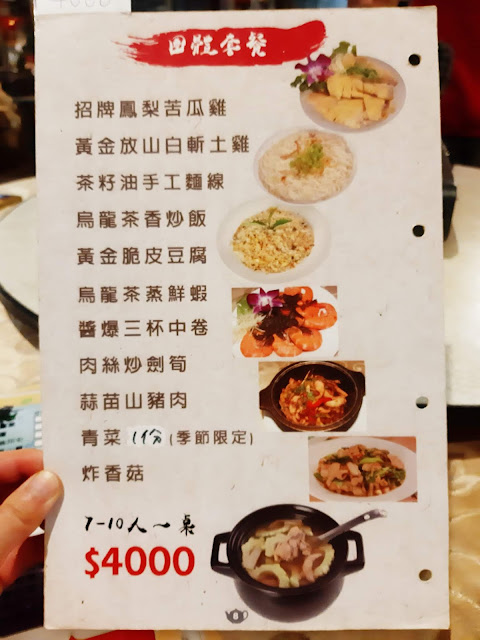 4000
團體套餐
招牌鳳梨苦瓜雞
黃金放山白斬土雞
茶籽油手工麵線
烏龍茶香炒飯
黃金脆皮豆腐
烏龍茶蒸鮮蝦
醬爆三杯中卷
肉絲炒劍筍
蒜苗山豬肉
青菜 1份 (季節限定)
炸香菇
7-10人一桌
$4000